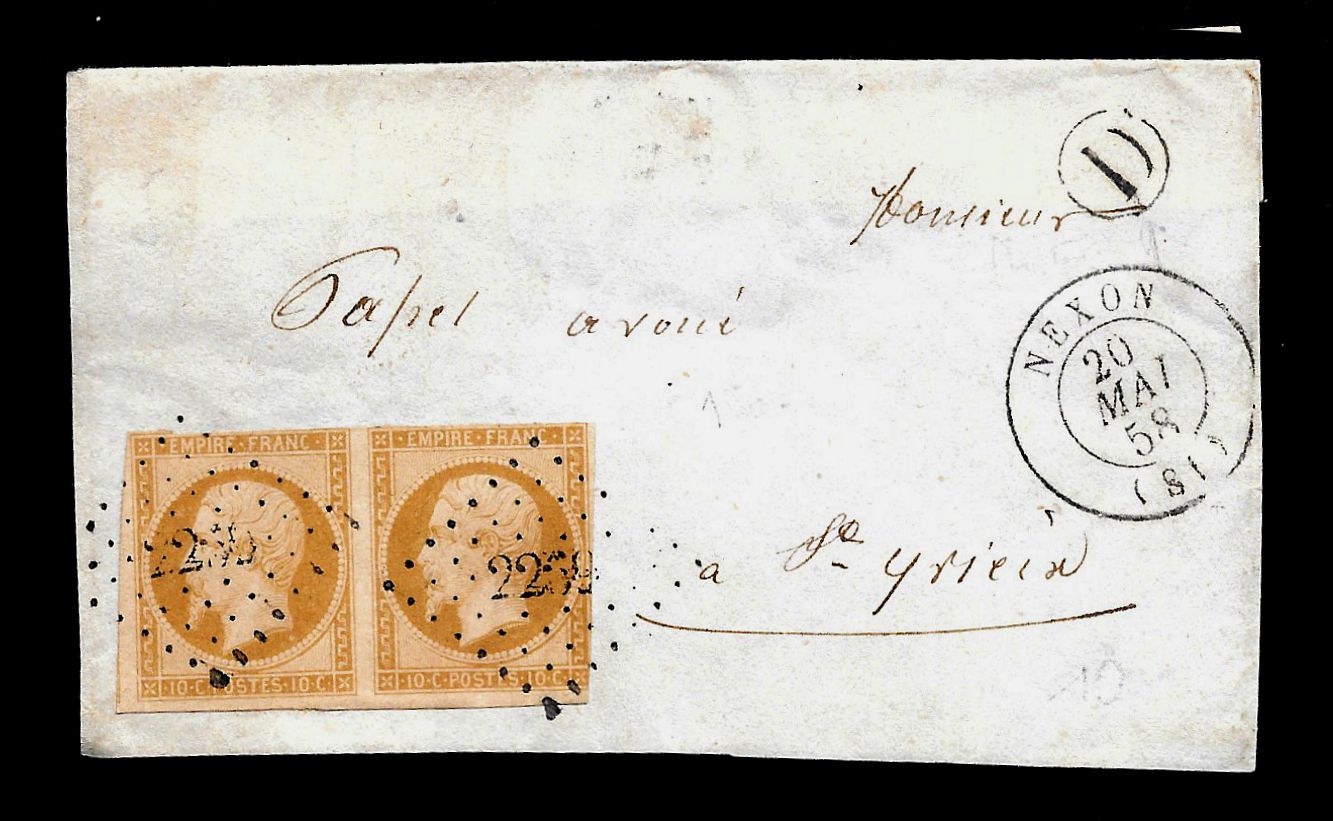 D
Monsieur
Papel avoué
NEXON
20
MAI
58
(81)
EMPIRE · FRANC · EMPIRE · FRANC ·
2259
· 10 · C · POSTES · 10 · C · · 10 · C · POSTES · 10 · C ·
a St yrieix